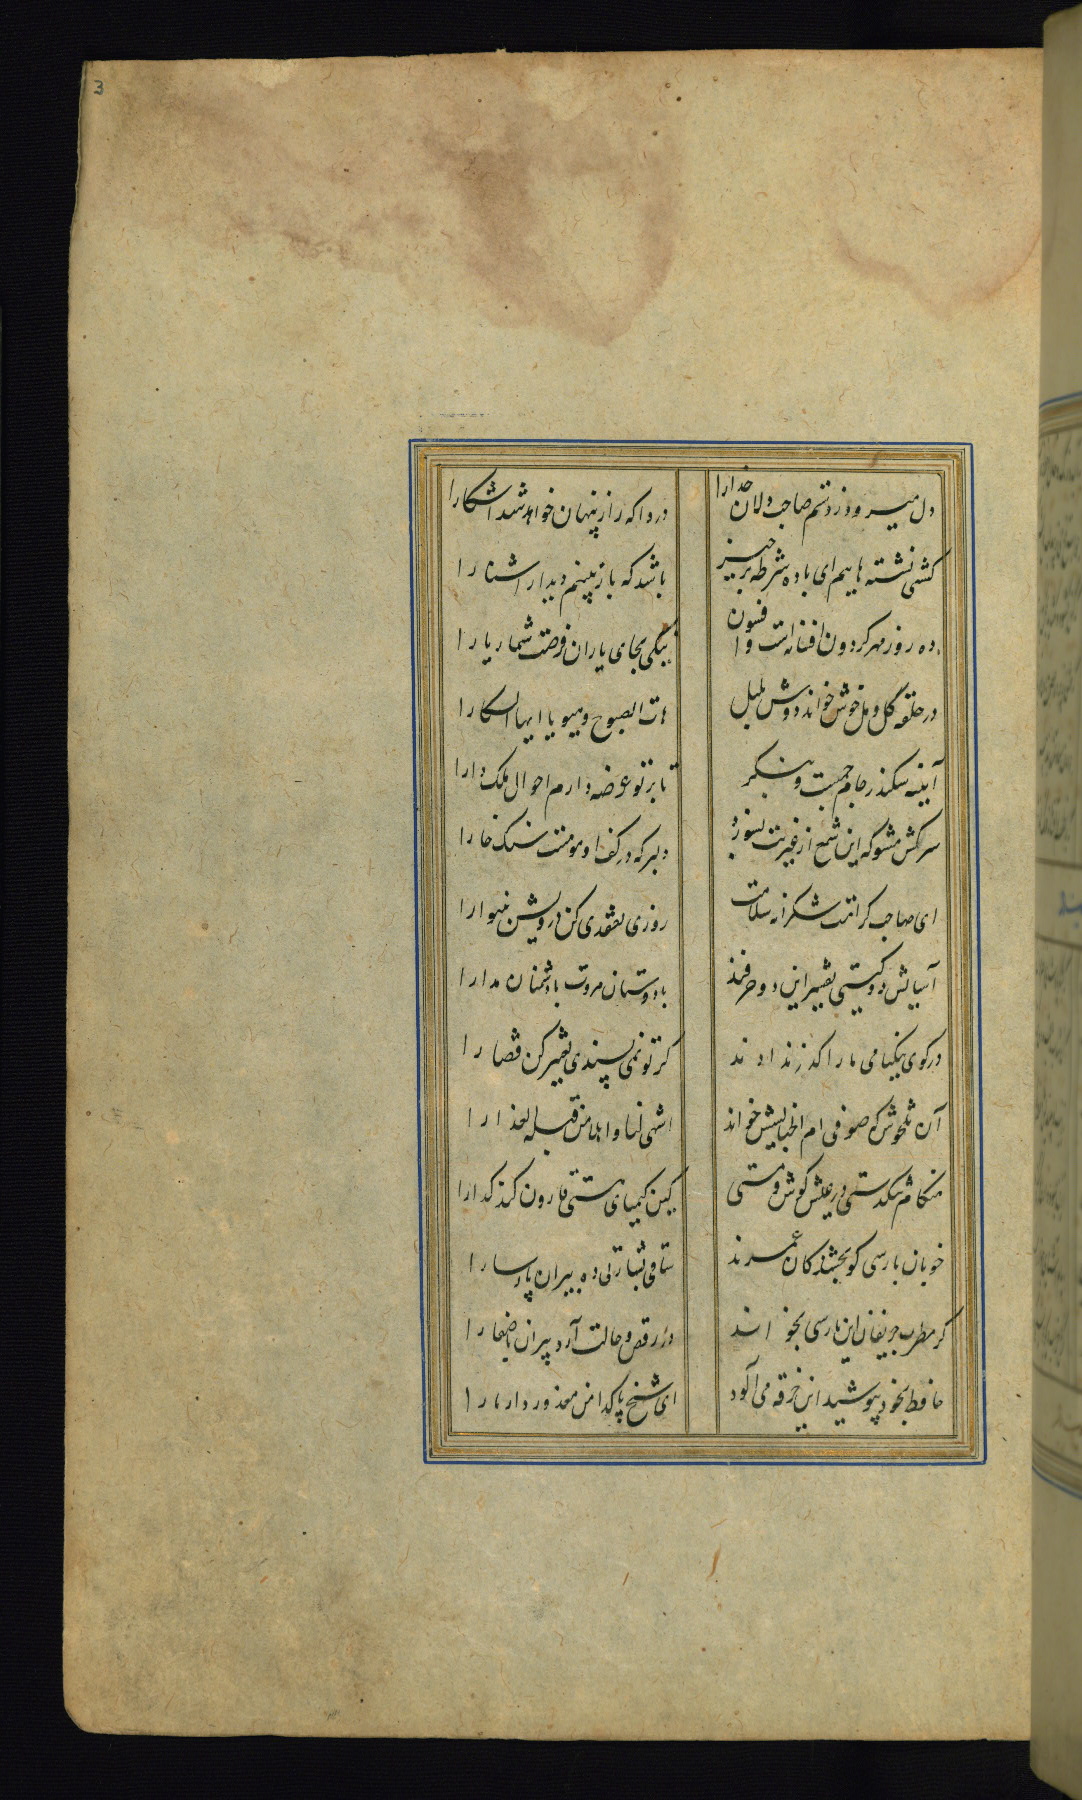 3
دل میرود ز دستم صاحب دلان خدارا دردا که راز پنهان خواهد شد اشکارا
کشتی نشسته هاییم ای باد شرطه برخیز باشد که باز بینیم دیدار اشنارا
ده روز مهر کردون افسانه است و افسون نیکی بجای یاران فرصت شمار یارا
در حلقه گل و مل خوش خواند دوش بلبل هات الصبوح وهیوا یا ایها السکارا
آیینه سکندر جام جمست بنکر تا بر تو عرضه دارم احوال ملک دارا
سرکش مشو که این شمع از غیرتت بسوزد دلبر که در کف او مومست سنک خارا
ای صاحب کرامت شکرانه سلامت روزی تفقدی کن درویش بینوارا
آسایش دو کیتی تفسیر این دو حرفند با دوستان مروت با دشمنان مدارا
در کوی نیکنامی مارا گذر ندادند کر تو نمی پسندی تغییر کن قضارا
آن تلخوش که صوفی ام الخبایثش خواند اشهی لنا واحلی من قبلة العذارا
هنکام تنکدستی در عیش کوش و مستی کین کیمیای هستی قارون کند کدارا
خوبان پارسی کو بخشندکان عمرند ساقی بشارتی ده پیران پارسارا
کر مطرب حریفان این پارسی بخواند در رقص و حالت آرد پیران
حافظ بخود نپوشید این خرقه می آلود ای شیخ پاکدامن معذور دار مارا